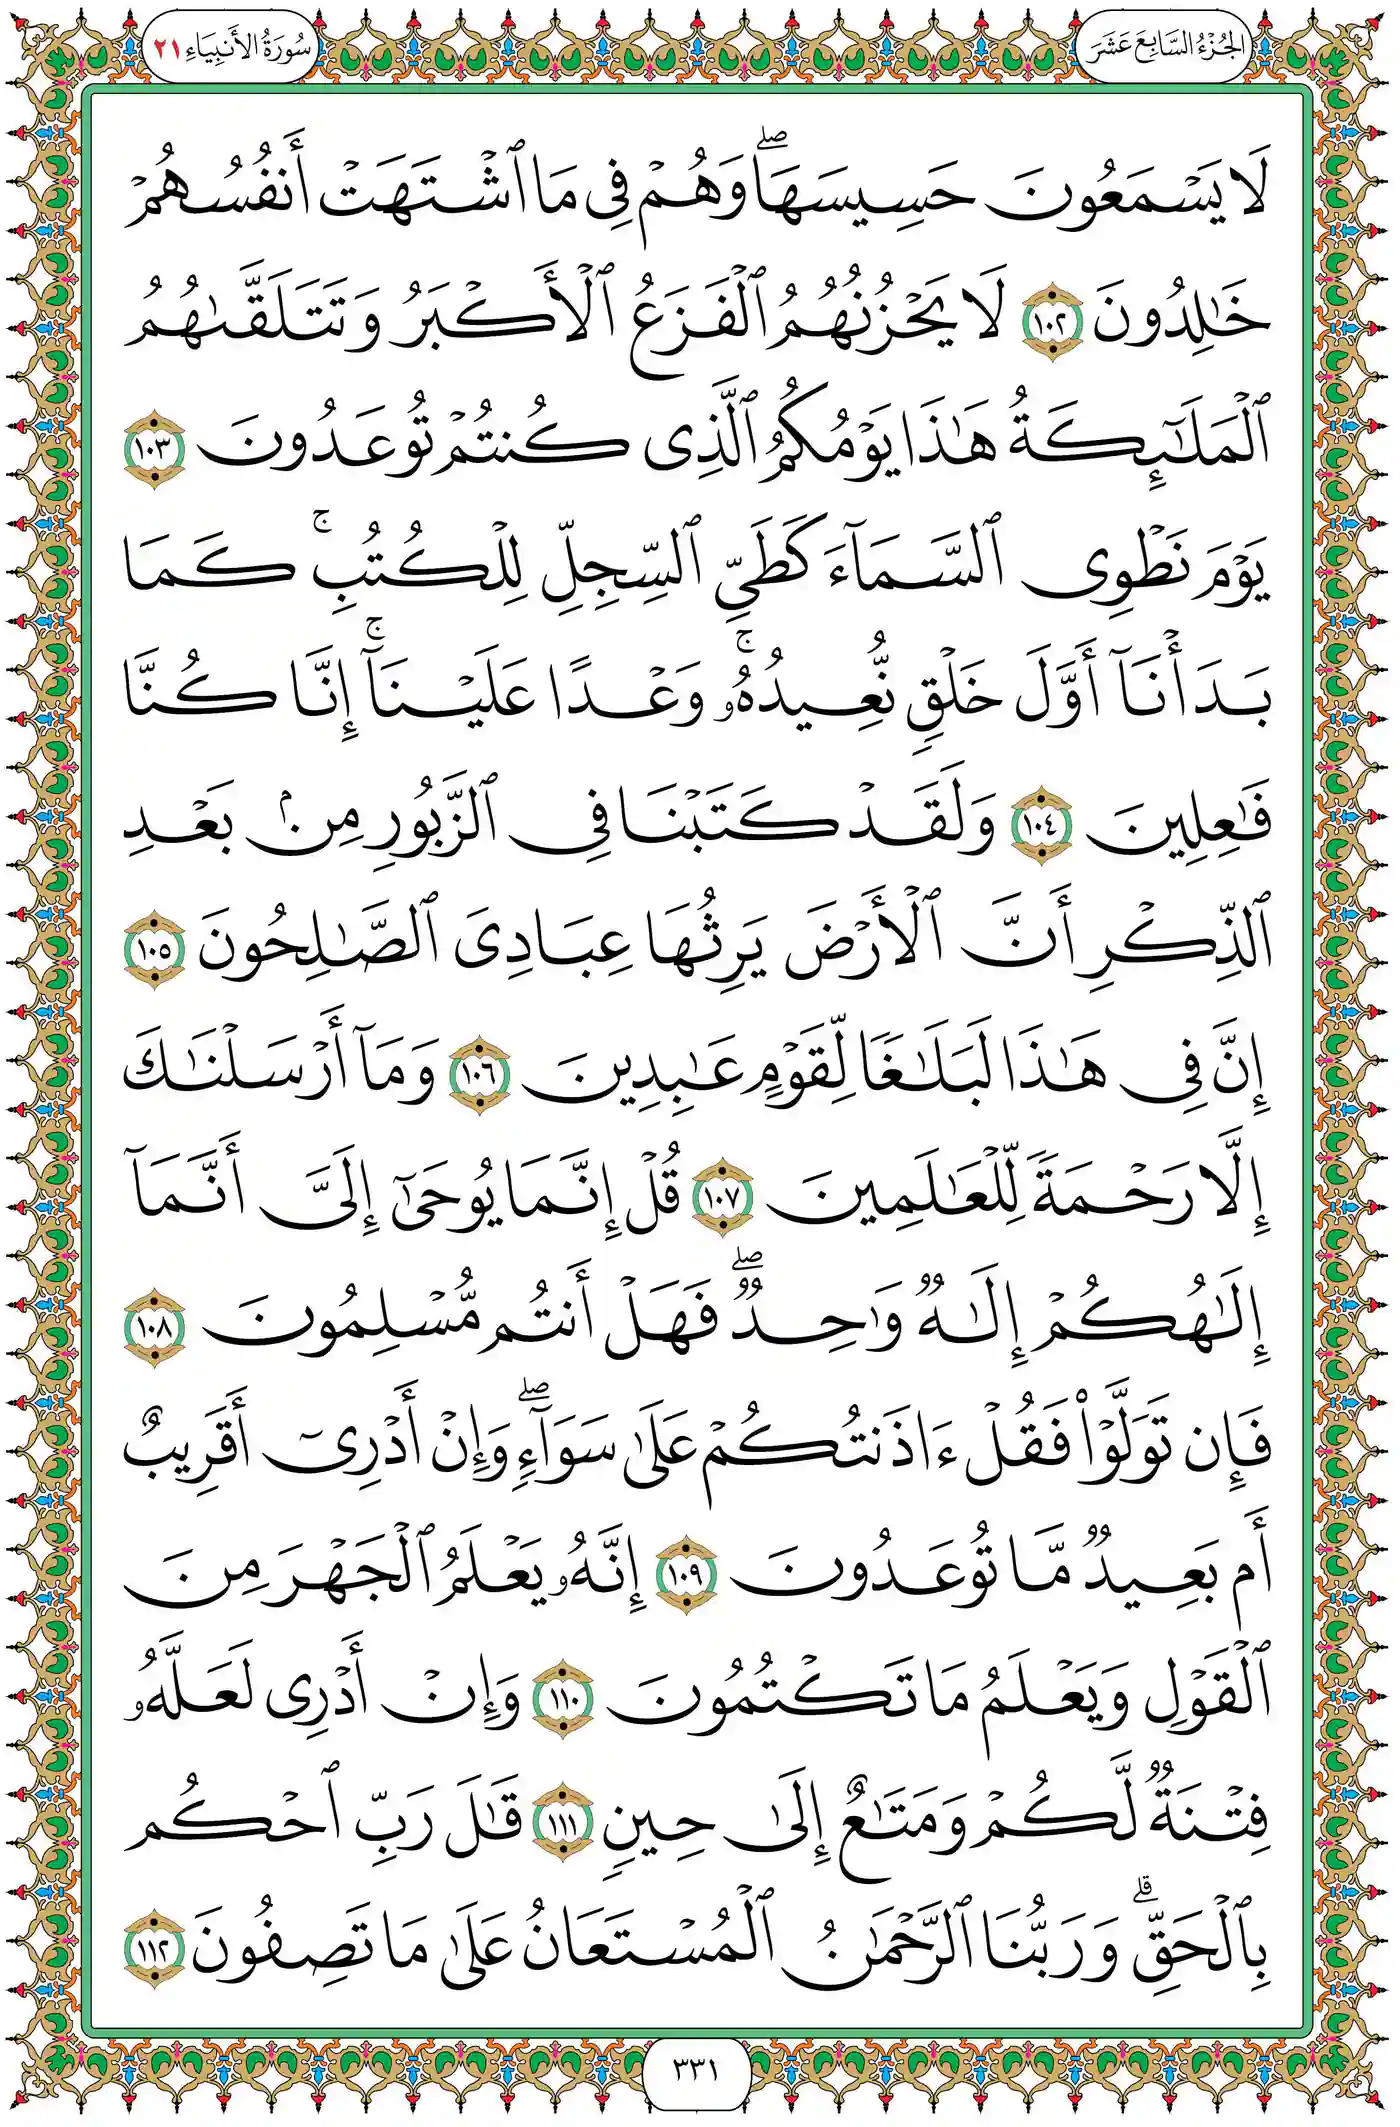 الجُزْءُ السَّابِعَ عَشَرَ
سُورَةُ الأَنبِيَاءِ ٢١
لَا يَسْمَعُونَ حَسِيسَهَا ۖ وَهُمْ فِى مَا ٱشْتَهَتْ أَنفُسُهُمْ
خَٰلِدُونَ ١٠٢ لَا يَحْزُنُهُمُ ٱلْفَزَعُ ٱلْأَكْبَرُ وَتَتَلَقَّىٰهُمُ
ٱلْمَلَٰٓئِكَةُ هَٰذَا يَوْمُكُمُ ٱلَّذِى كُنتُمْ تُوعَدُونَ ١٠٣
يَوْمَ نَطْوِى ٱلسَّمَآءَ كَطَىِّ ٱلسِّجِلِّ لِلْكُتُبِ ۚ كَمَا
بَدَأْنَآ أَوَّلَ خَلْقٍ نُّعِيدُهُۥ ۚ وَعْدًا عَلَيْنَآ ۚ إِنَّا كُنَّا
فَٰعِلِينَ ١٠٤ وَلَقَدْ كَتَبْنَا فِى ٱلزَّبُورِ مِنۢ بَعْدِ
ٱلذِّكْرِ أَنَّ ٱلْأَرْضَ يَرِثُهَا عِبَادِىَ ٱلصَّٰلِحُونَ ١٠٥
إِنَّ فِى هَٰذَا لَبَلَٰغًا لِّقَوْمٍ عَٰبِدِينَ ١٠٦ وَمَآ أَرْسَلْنَٰكَ
إِلَّا رَحْمَةً لِّلْعَٰلَمِينَ ١٠٧ قُلْ إِنَّمَا يُوحَىٰٓ إِلَىَّ أَنَّمَآ
إِلَٰهُكُمْ إِلَٰهٌ وَٰحِدٌ ۖ فَهَلْ أَنتُم مُّسْلِمُونَ ١٠٨
فَإِن تَوَلَّوْا۟ فَقُلْ ءَاذَنتُكُمْ عَلَىٰ سَوَآءٍ ۖ وَإِنْ أَدْرِىٓ أَقَرِيبٌ
أَم بَعِيدٌ مَّا تُوعَدُونَ ١٠٩ إِنَّهُۥ يَعْلَمُ ٱلْجَهْرَ مِنَ
ٱلْقَوْلِ وَيَعْلَمُ مَا تَكْتُمُونَ ١١٠ وَإِنْ أَدْرِى لَعَلَّهُۥ
فِتْنَةٌ لَّكُمْ وَمَتَٰعٌ إِلَىٰ حِينٍ ١١١ قَٰلَ رَبِّ ٱحْكُم
بِٱلْحَقِّ ۗ وَرَبُّنَا ٱلرَّحْمَٰنُ ٱلْمُسْتَعَانُ عَلَىٰ مَا تَصِفُونَ ١١٢
٣٣١